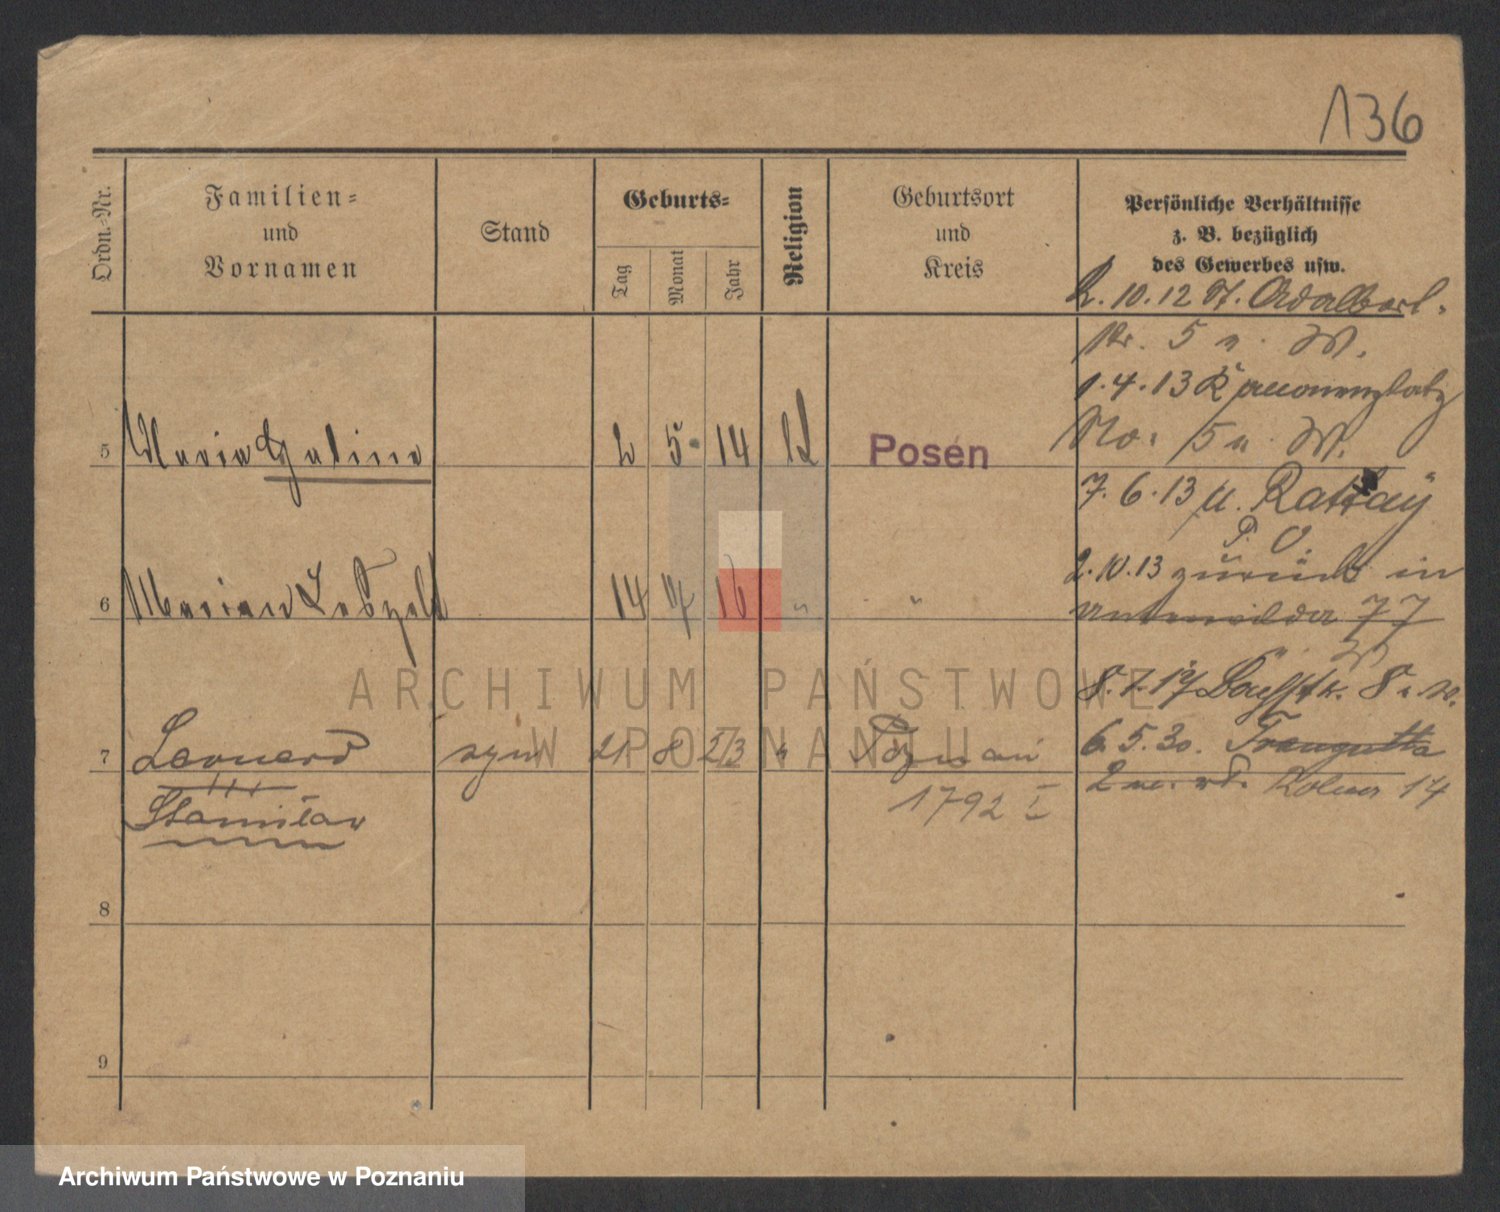 136
Ordn.-Nr.
Familien-
und
Vornamen
Stand
Geburts-
Tag
Monat
Jahr
Religion
Geburtsort
und
Kreis
Persönliche Verhältnisse
z. B. bezüglich
des Gewerbes usw.
2.10.12 St. Adalbert-
str. 5 n. W.
1.4.13 Kanonenplatz
No. 5 n. W.
5 Maria Halina 2 5 14 Posen
7.6.13 n. Rattay
P. O.
2.10.13 zurück in
6 Marian 14 16 " "
Unterwilda 77
W
8. n. W.
7 Leonard syn 21 8 23 " Poznań
6.5.30. Traugutta
Stanisław
1792 I
14
8
9
ARCHIWUM PAŃSTWOWE
W POZNANIU
Archiwum Państwowe w Poznaniu